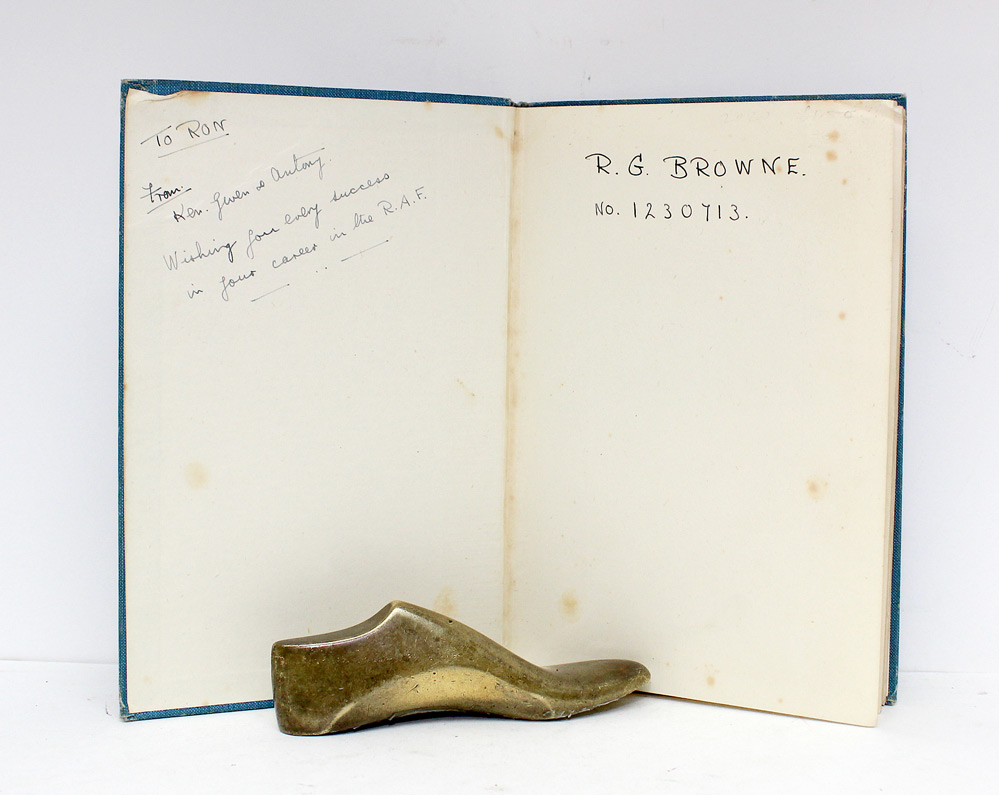 TO RON
From.
Ken. Gwen & Antony.
Wishing you every success
in your career in the R.A.F.
R. G. BROWNE.
No. 1230713.